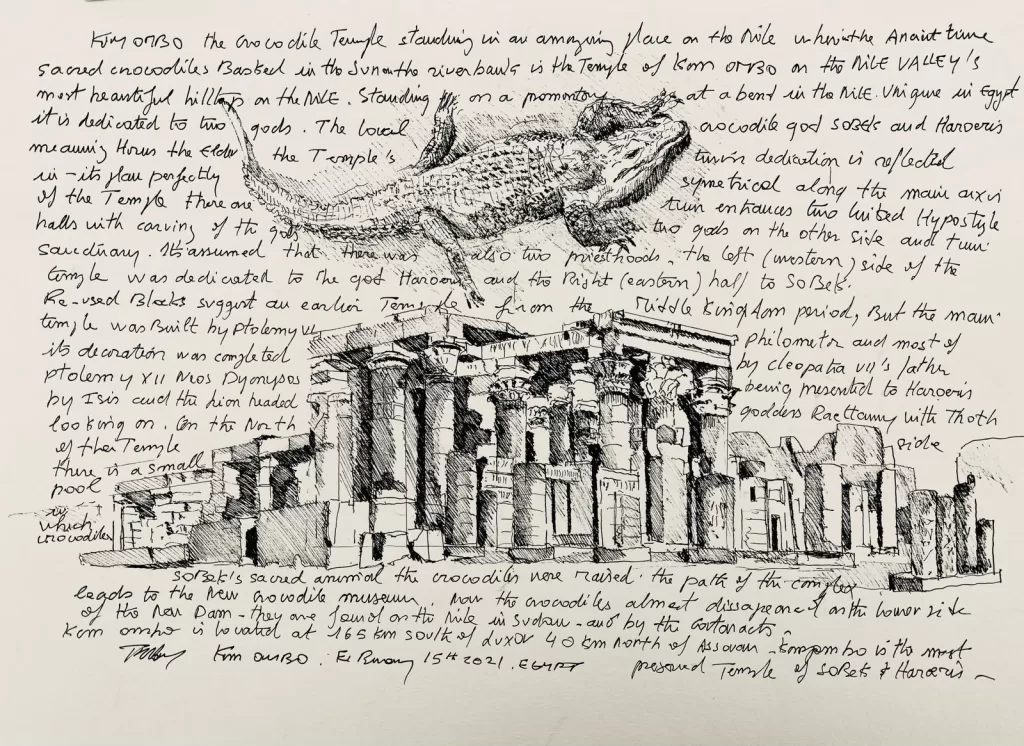 Kom OMBO the Crocodile Temple standing in an amazing place on the Nile where in the Ancient time
sacred crocodiles Basked in the Sun on the river banks is the Temple of Kom OMBO on the NILE VALLEY's
most beautiful hilltop on the NILE. Standing on a promontory at a bend in the NILE. Unique in Egypt
it is dedicated to two gods. The local crocodile god SOBEk and Haroeris
meaning Horus the Elder the Temple's twin dedication is reflected
in - its plan perfectly symetrical along the main axis
of the Temple there are twin entrances two linked Hypostyle
halls with carving of the gods two gods on the other side and twin
sanctuary. It's assumed that there was also two priesthoods. the left (western) side of the
temple was dedicated to the god Haroeris and the Right (eastern) half to SoBek.
Re-used Blocks suggest an earlier Temple from the Middle Kingdom period, But the main
temple was Built by Ptolemy VI Philometor and most of
its decoration was completed by cleopatra VII's father
Ptolemy XII Neos Dyonysos being presented to Haroeris
by Isis and the Lion headed goddess Raettawy with Thoth
looking on. On the North side
of the Temple
there is a small
pool
in
which
crocodiles
SOBek's sacred animal the crocodiles were raised. the path of the complex
leads to the New crocodile museum. Now the crocodiles almost dissapeared on the lower side
of the New Dam - they are found on the Nile in Sudan - and by the cataracts.
Kom ombo is located at 165 km south of Luxor 40 km North of Assouan - Kom ombo is the most
Kom OMBO. 15th 2021. EGYPT preserved Temple of SOBEk & Haroeris